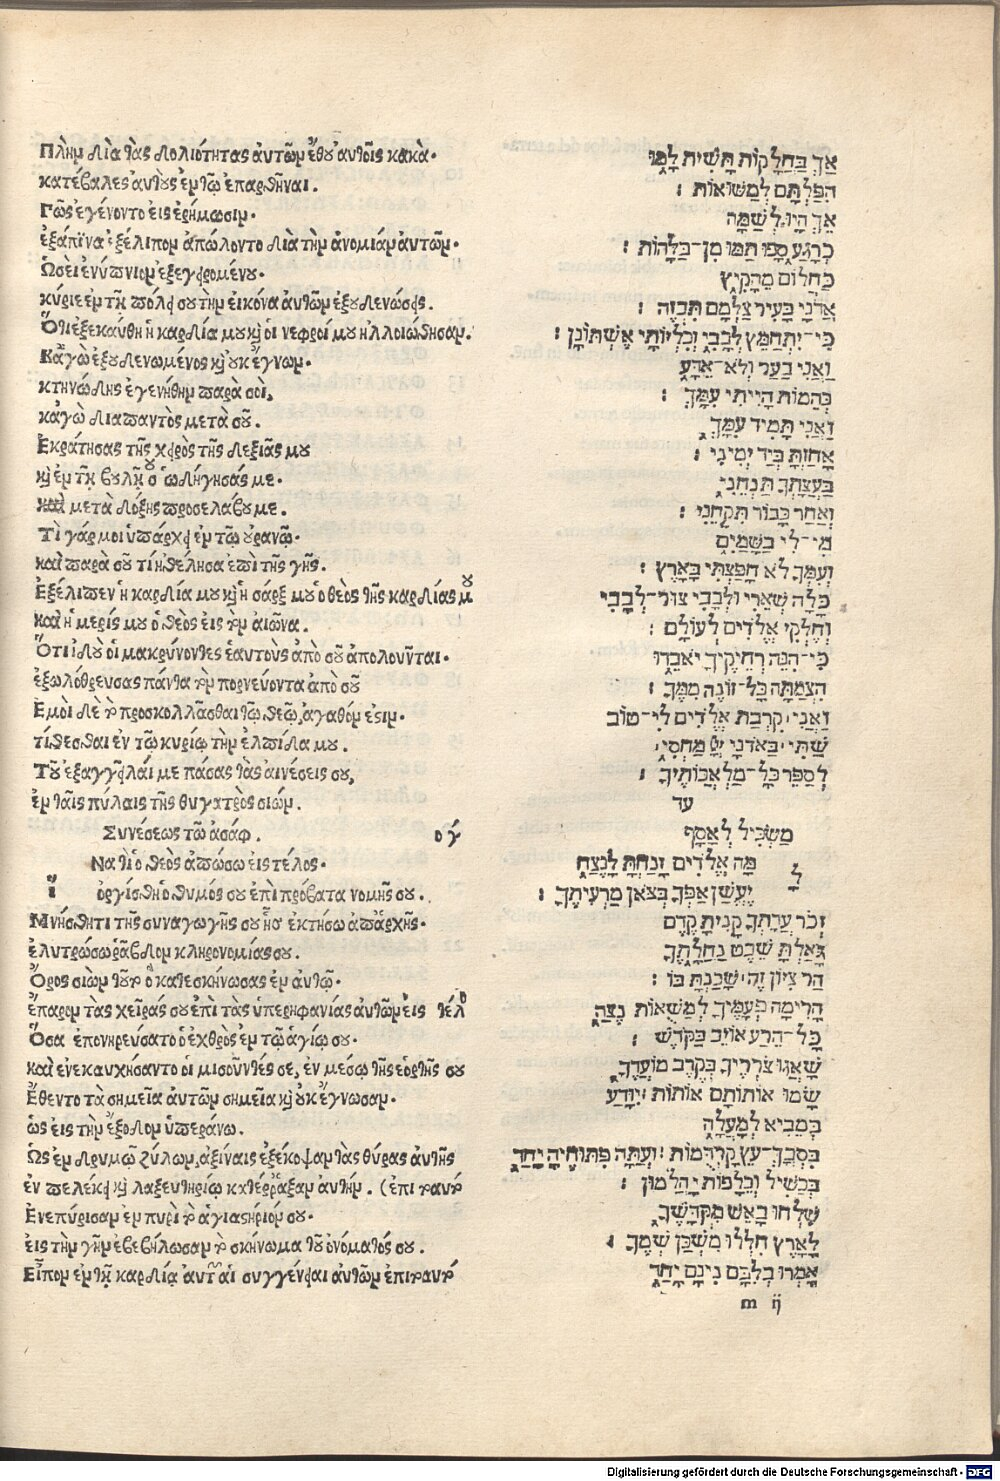 Πλὴν διὰ τὰς δολιότητας ἀυτῶν ἔθου ἀυτοῖς κακὰ.
κατέβαλες ἀυτοὺς ἐν τῷ ἐπαρθῆναι.
Γῶς ἐγένοντο εἰς ἐρήμωσιν.
ἐξάπϊνα ἐξέλιπον ἀπώλοντο διὰ τὴν ἀνομίαν ἀυτῶν.
Ὡσεὶ ἐνύπνιον ἐξεγειρομένου.
κύριε ἐν τῇ πόλει σου τὴν εικόνα ἀυτῶν ἐξουδενώσεις.
Ὅτι ἐξεκαύθη ἡ καρδία μου καὶ οἱ νεφροί μου ἠλλοιώθησαν.
Καγὼ ἐξουδενωμένος καὶ ουκ ἔγνων.
κτηνώδης ἐγενήθην παρὰ σοὶ,
καγὼ διαπαντὸς μετὰ σοῦ.
Ἐκράτησας τῆς χειρὸς τῆς δεξιᾶς μου
καὶ ἐν τῇ βουλῇ σου ὡδήγησάς με.
καὶ μετὰ δόξης προσελάβου με.
Τὶ γάρ μοι ὑπάρχει ἐν τῷ ουρανῷ.
καὶ παρὰ σοῦ τί ἠθέλησα ἐπὶ τῆς γῆς.
Ἐξέλιπεν ἡ καρδία μου καὶ ἡ σάρξ μου ὁ θεὸς τῆς καρδίας μου
καὶ ἡ μερίς μου ὁ θεὸς εἰς τὸν αιῶνα.
Ὅτι ἰδοὺ οἱ μακρύνοντες ἑαυτοὺς ἀπὸ σοῦ ἀπολοῦνται.
ἐξωλόθρευσας πάντα τὸν πορνεύοντα ἀπὸ σοῦ
Ἐμοὶ δὲ τὸ προσκολλᾶσθαι τῷ θεῷ, ἀγαθόν ἐσιν.
τίθεσθαι ἐν τῷ κυρίῳ τὴν ἐλπίδα μου.
Τοῦ ἐξαγγεῖλαί με πάσας τὰς αἰνέσεις σου,
ἐν ταῖς πύλαις τῆς θυγατρὸς σιών.
Συνέσεως τῷ ἀσάφ. ογ
Ἱνατί ὁ θεὸς ἀπώσω εἰς τέλος.
ὀργίσθη ὁ θυμός σου ἐπὶ πρόβατα νομῆς σου.
Μνήσθητι τῆς συναγωγῆς σου ἧς ἐκτήσω ἀπ' ἀρχῆς.
ἐλυτρώσω ῥάβδον κληρονομίας σου.
Ὄρος σιὼν τοῦτο ὃ κατεσκήνωσας ἐν ἀυτῷ.
ἔπαρον τὰς χεῖράς σου ἐπὶ τὰς ὑπερηφανίας ἀυτῶν εἰς τέλ
Ὅσα ἐπονηρεύσατο ὁ ἐχθρὸς ἐν τῷ ἁγίῳ σου.
καὶ ἐνεκαυχήσαντο οἱ μισοῦντές σε, ἐν μέσῳ τῆς ἑορτῆς σου
Ἔθεντο τὰ σημεῖα ἀυτῶν σημεῖα καὶ ουκ ἔγνωσαν.
ὡς εἰς τὴν ἔξοδον ὑπεράνω.
Ὡς ἐν δρυμῷ ξύλων, ἀξίναις ἐξέκοψαν τὰς θύρας ἀυτῆς
ἐν πελέκει καὶ λαξευτηρίῳ κατέρραξαν ἀυτήν. (ἐπὶ τὸ αυτὸ
Ἐνεπύρισαν ἐν πυρὶ τὸ ἁγιαστήριόν σου.
εἰς τὴν γῆν ἐβεβήλωσαν τὸ σκήνωμα τοῦ ὀνόματός σου.
Εἶπον ἐν τῇ καρδίᾳ αὐτῶν αἱ συγγένειαι ἀυτῶν ἐπὶ τὸ αυτὸ
אַךְ בַּחֲלָקוֹת תָּשִׁית לָמוֹ
הִפַּלְתָּם לְמַשּׁוּאוֹת :
אֵךְ הָיוּ לְשַׁמָּה
כְרָגַע סָפוּ תַמּוּ מִן־בַּלָּהוֹת :
כַּחֲלוֹם מֵהָקִיץ
אֲדֹנָי בָּעִיר צַלְמָם תִּבְזֶה :
כִּי־יִתְחַמֵּץ לְבָבִי וְכִלְיוֹתַי אֶשְׁתּוֹנָן :
וַאֲנִי בַעַר וְלֹא־אֵדָע
בְּהֵמוֹת הָיִיתִי עִמָּךְ :
וַאֲנִי תָּמִיד עִמָּךְ
אָחַזְתָּ בְּיַד יְמִינִי :
בַּעֲצָתְךָ תַנְחֵנִי
וְאַחַר כָּבוֹד תִּקָּחֵנִי :
מִי־לִי בַשָּׁמַיִם
וְעִמְּךָ לֹא חָפַצְתִּי בָאָרֶץ :
כָּלָה שְׁאֵרִי וּלְבָבִי צוּר־לְבָבִי
וְחֶלְקִי אֱלֹדִים לְעוֹלָם :
כִּי־הִנֵּה רְחֵיקֶיךָ יֹאבֵדוּ
הִצְמַתָּה כָּל־זוֹנֶה מִמֶּךָּ :
וַאֲנִי קִרְבַת אֱלֹדִים לִי־טוֹב
שַׁתִּי בַּאדֹנָי יְיָ מַחְסִי
לְסַפֵּר כָּל־מַלְאֲכוֹתֶיךָ :
עד
מַשְׂכִּיל לְאָסָף
לָמָה אֱלֹדִים זָנַחְתָּ לָנֶצַח
יֶעְשַׁן אַפְּךָ בְּצֹאן מַרְעִיתֶךָ :
זְכֹר עֲדָתְךָ קָנִיתָ קֶּדֶם
גָּאַלְתָּ שֵׁבֶט נַחֲלָתֶךָ
הַר צִיּוֹן זֶה שָׁכַנְתָּ בּוֹ :
הָרִימָה פְעָמֶיךָ לְמַשֻּׁאוֹת נֶצַח
כָּל־הֵרַע אוֹיֵב בַּקֹּדֶשׁ :
שָׁאֲגוּ צֹרְרֶיךָ בְּקֶרֶב מוֹעֲדֶךָ
שָׂמוּ אוֹתוֹתָם אוֹתוֹת : יִוָּדַע
כְּמֵבִיא לְמָעְלָה
בִּסְבָךְ־עֵץ קַרְדֻּמּוֹת : וְעַתָּה פִּתּוּחֶיהָ יָחַד
בְּכַשִּׁיל וְכֵלַפּוֹת יַהֲלֹמוּן :
שִׁלְחוּ בָאֵשׁ מִקְדָּשֶׁךָ
לָאָרֶץ חִלְּלוּ מִשְׁכַּן שְׁמֶךָ :
אָמְרוּ בְלִבָּם נִינָם יָחַד
m ij
Digitalisierung gefördert durch die Deutsche Forschungsgemeinschaft - DFG